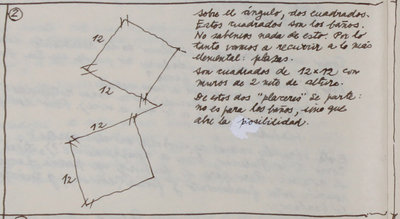 ②
12
12
12
12
Sobre el ángulo, dos cuadrados.
Estos cuadrados son los baños.
No sabemos nada de esto. Por lo
tanto vamos a recurrir a lo más
elemental: plazas.
Son cuadrados de 12x12 con
muros de 2 mts de altura.
De estos dos "placeres" se parte:
no es para los baños, sino que
abre la posibilidad.